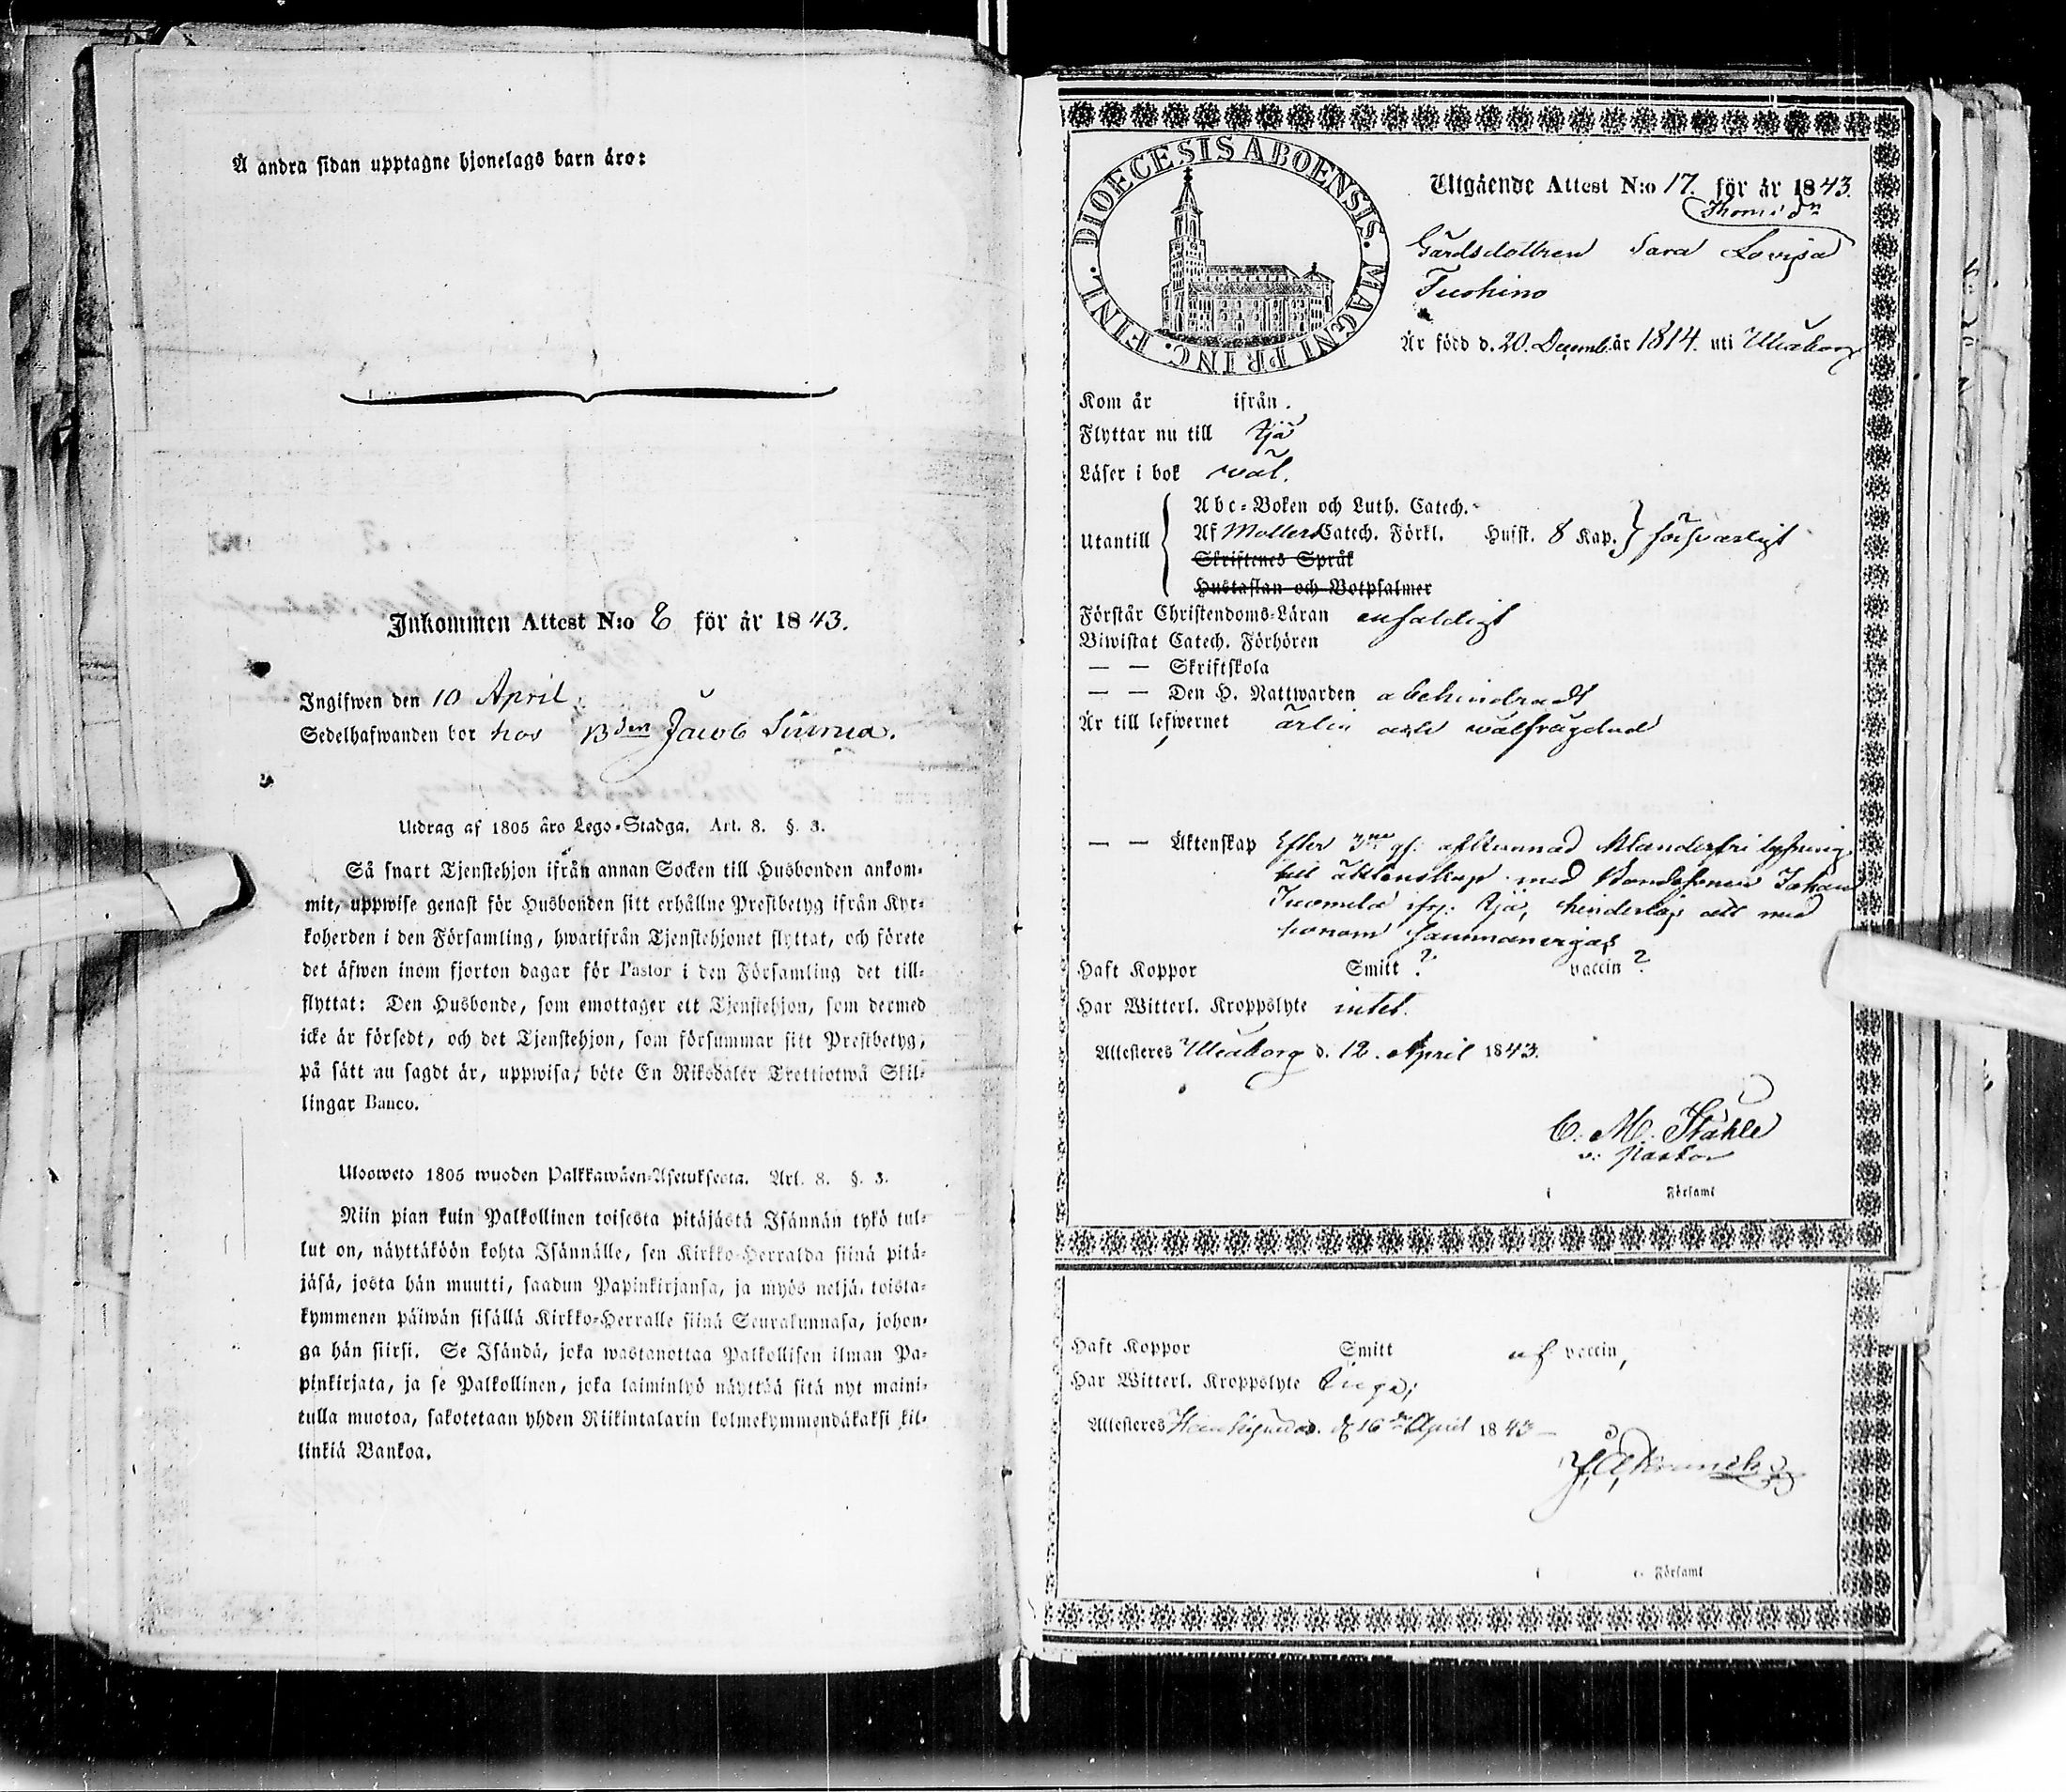 Å andra sidan upptagne hjonelags barn äro:
Inkommen Attest N:o 8 för år 1843.
Ingifwen den 10 April
Sedelhafwanden bor hos Bden Jacob
Utdrag af 1805 års Lego-Stadga. Art. 8. §. 3.
Så snart Tjenstehjon ifrån annan Socken till Husbonden ankom-
mit, uppwise genast för Husbonden sitt erhållne Prestbetyg ifrån Kyr-
koherden i den Församling, hwarifrån Tjenstehjonet flyttat, och förete
det äfwen inom fjorton dagar för Pastor i den Församling det till-
flyttat: Den Husbonde, som emottager ett Tjenstehjon, som dermed
icke är försedt, och det Tjenstehjon, som försummar sitt Prestbetyg,
på sätt nu sagdt är, uppwisa, böte En Riksdaler Trettiotwå Skil-
lingar Banco.
Ulosweto 1805 wuoden Palkkawäen-Asetuksesta. Art. 8. §. 3.
Niin pian kuin Palkollinen toisesta pitäjästä Isännän tykö tul-
lut on, näyttäköön kohta Isännälle, sen Kirkko-Herralda siinä pitä-
jäsä, josta hän muutti, saadun Papinkirjansa, ja myös neljä. toista-
kymmenen päiwän sisällä Kirkko-Herralle siinä Seurakunnasa, johon-
ga hän siirsi. Se Isändä, joka wastanottaa Palkollisen ilman Pa-
pinkirjata, ja se Palkollinen, joka laiminlyö näyttää sitä nyt maini-
tulla muotoa, sakotetaan yhden Riikintalarin kolmekymmendäkaksi kil-
linkiä Bankoa.
DIOECESIS ABOENSIS. MAGNI PRINC. FINL.
Utgående Attest N:o 17. för år 1843.
Thomsdn
Gårdsdottren Sara Lovisa
Är född d. 20. Decemb. år 1814. uti Uleåborg
Kom år ifrån.
Flyttar nu till Ijå
Läser i bok wäl.
Utantill
Abc-Boken och Luth. Catech.
Af Möllers Catech. Förkl. Hufst. 8 Kap. } försvarligt
Skriftenes Språk
Hustaflan och Botpsalmer
Förstår Christendoms-Läran enfaldigt
Biwistat Catech. Förhören
— — Skriftskola
— — Den H. Nattwarden obehindradt
Är till lefwernet ärlig och wälfrägdad
— — Äktenskap Efter 3ne gr. afkunnad klanderfri lysning
till äktenskap med Bondesonen Johan
Tuomela ifr: Ijå, hinderlös att med
honom sammanvigas
Haft Koppor Smitt ? vaccin ?
Har Witterl. Kroppslyte intet.
Attesteres Uleåborg d. 12. April 1843.
C. M. Ståhle
v: Pastor
i Församl
Haft Koppor Smitt af vaccin,
Har Witterl. Kroppslyte Inga;
Attesteres d. 16de April 1843
i Församl